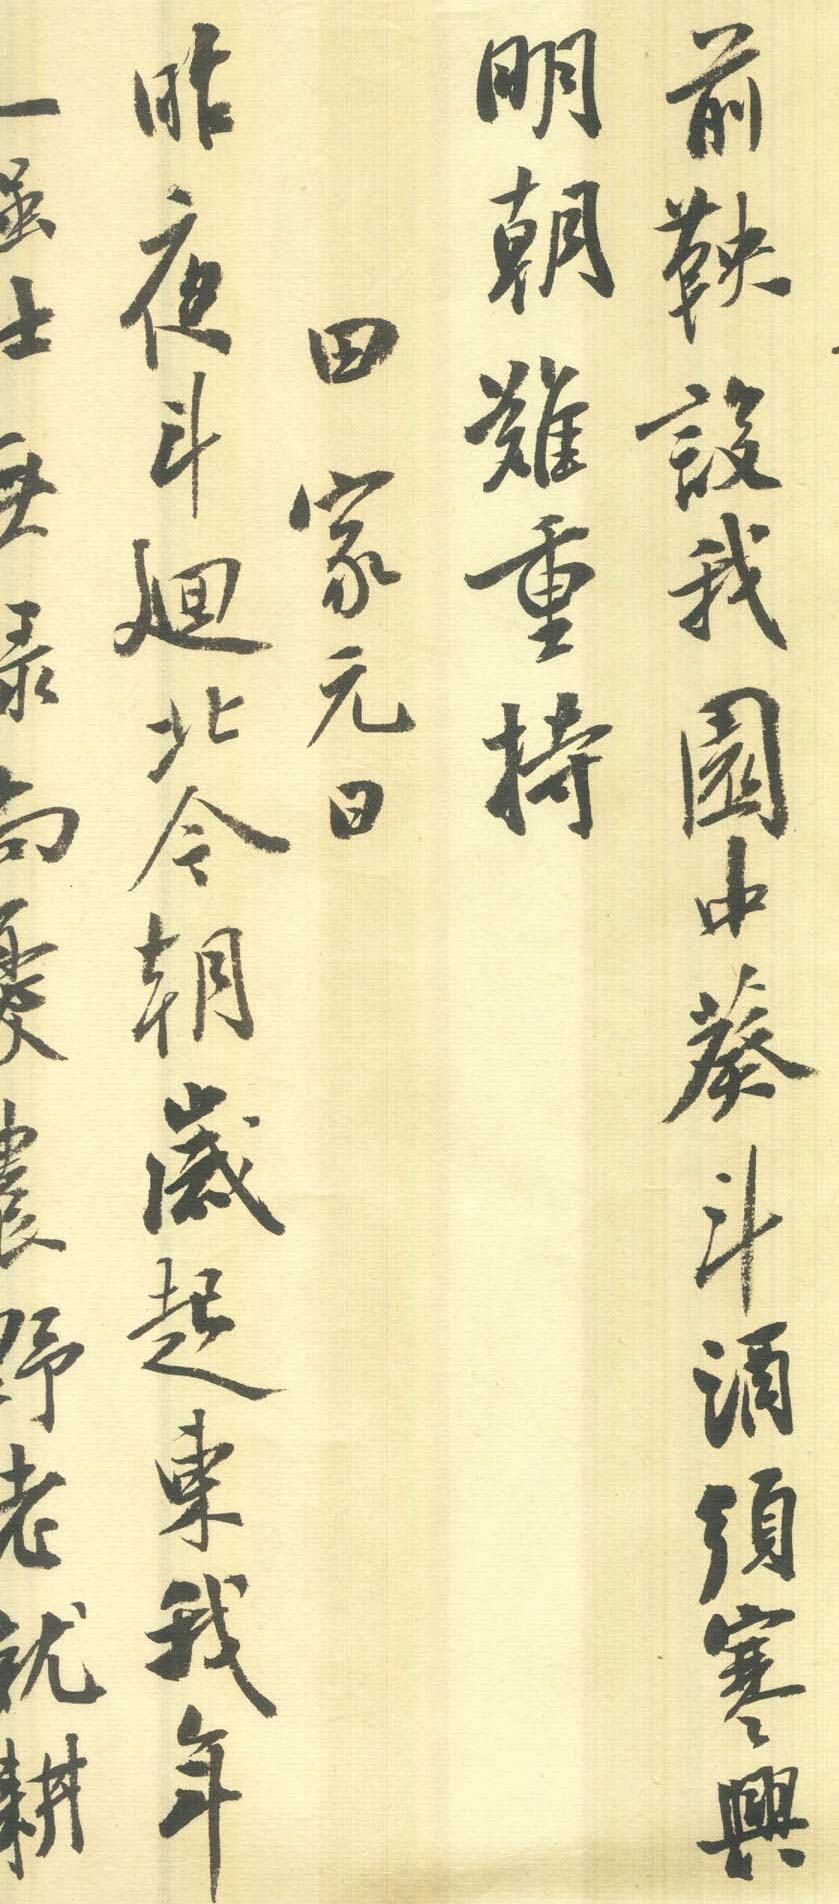 前鞅設我園中葵斗酒須寒興
明朝難重持
田家元日
昨夜斗迴北今朝歲起東我年
無祿尚憂農野老就耕